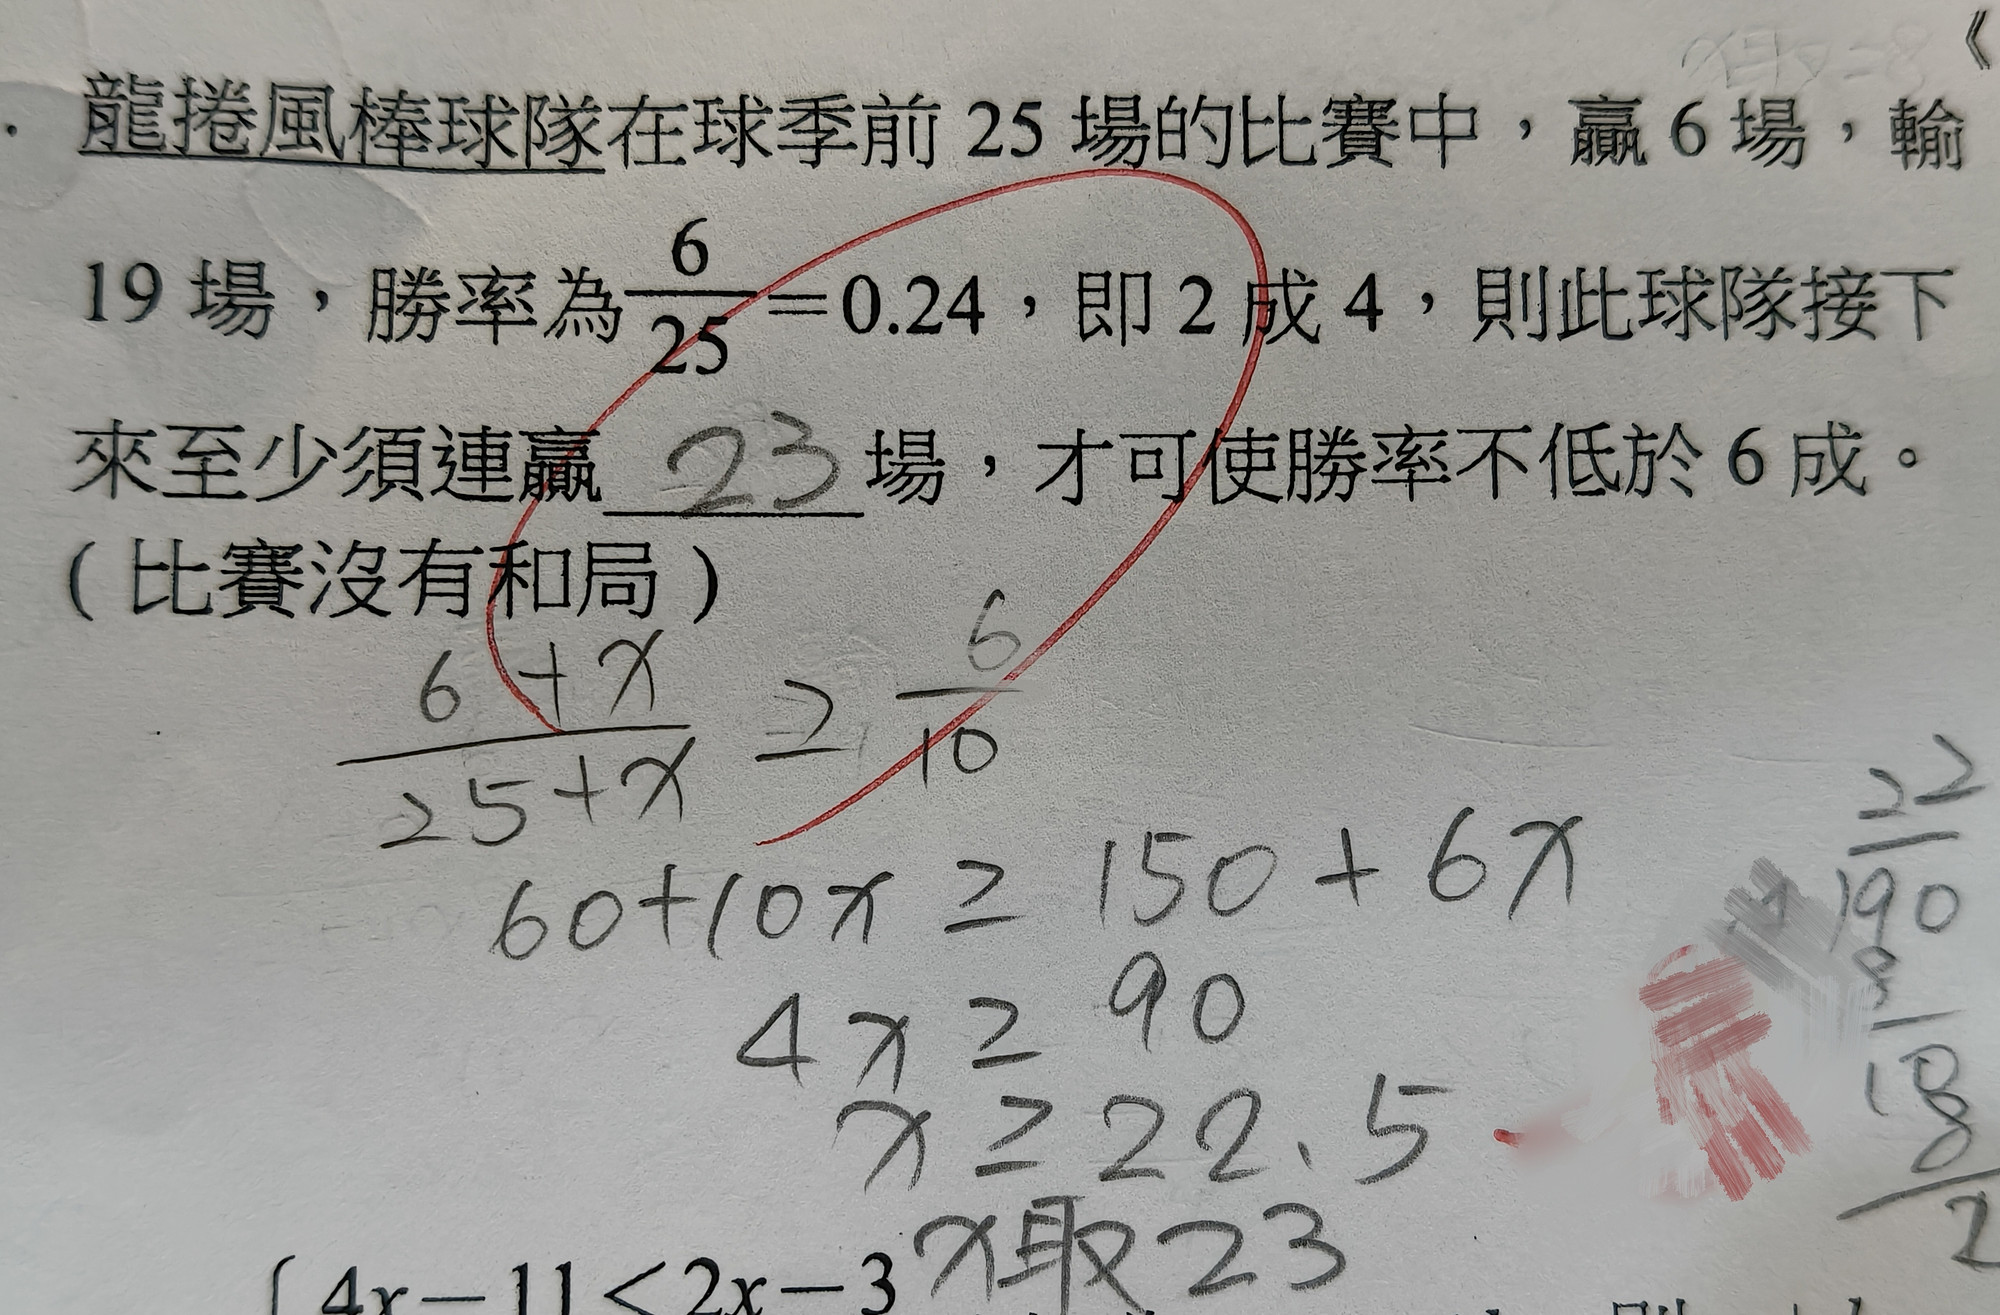 龍捲風棒球隊在球季前 25 場的比賽中，贏 6 場，輸
19 場，勝率為 6/25 ＝0.24，即 2 成 4，則此球隊接下
來至少須連贏 23 場，才可使勝率不低於 6 成。
（比賽沒有和局）
6+x/25+x ≥ 6/10
60+10x ≥ 150+6x
4x ≥ 90
x ≥ 22.5
x取23
22
190
8
10
8
2
4x－11＜2x－3